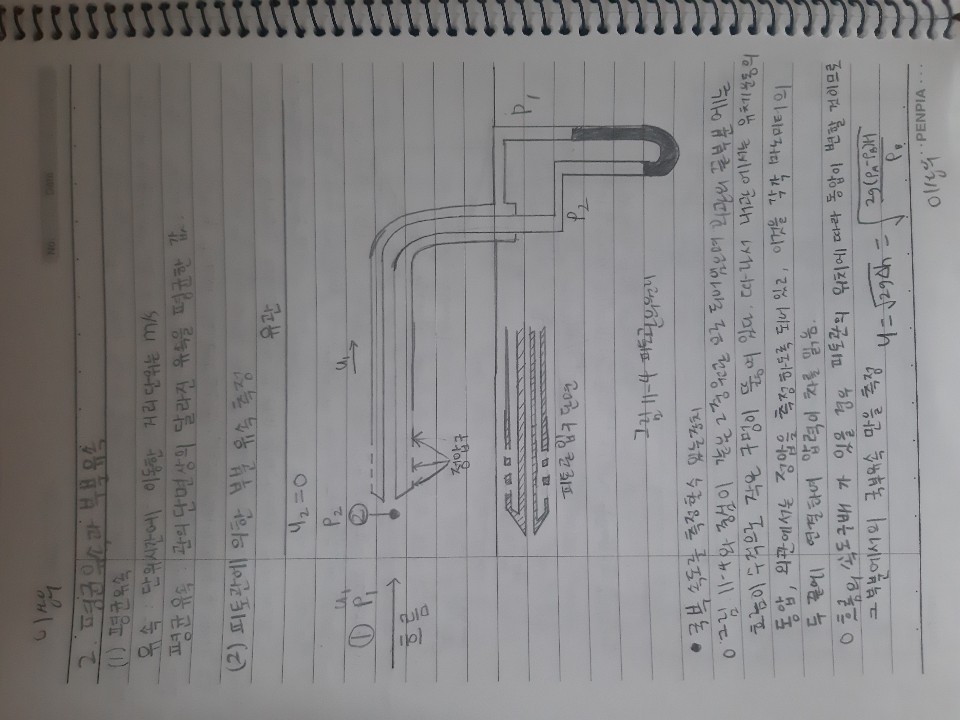 이형
2. 평균유속과 부분유속
(1) 평균유속
유속 : 단위시간에 이동한 거리 단위는 m/s
평균유속 : 관의 단면상의 달라진 유속을 평균한 값.
(2) 피토관에 의한 부분 유속 측정
유관
u₂=0
u₁
P₂
②
u₁
① P₁
흐름
정압구
P₂
P₁
피토관 입구 단면
그림 11-4 피토관
● 국부속도를 측정할 수 있는 장치
○ 그림 11-4와 같이 가는 2중관으로 되어 있으며 끝부분에는
흐름이 작은 구멍이 뚫려 있다. 따라서 내관에서는 유체유동의
동압, 외관에서는 정압을 측정하도록 되어 있고, 이것을 각각 마노미터의
두 끝에 연결하여 압력의 차를 읽음.
○ 유속이 있을 경우 피토관의 위치에 따라 동압이 변할 것이므로
그 부분에서의 국부유속만을 측정
u = √2gΔh = √
PENPIA